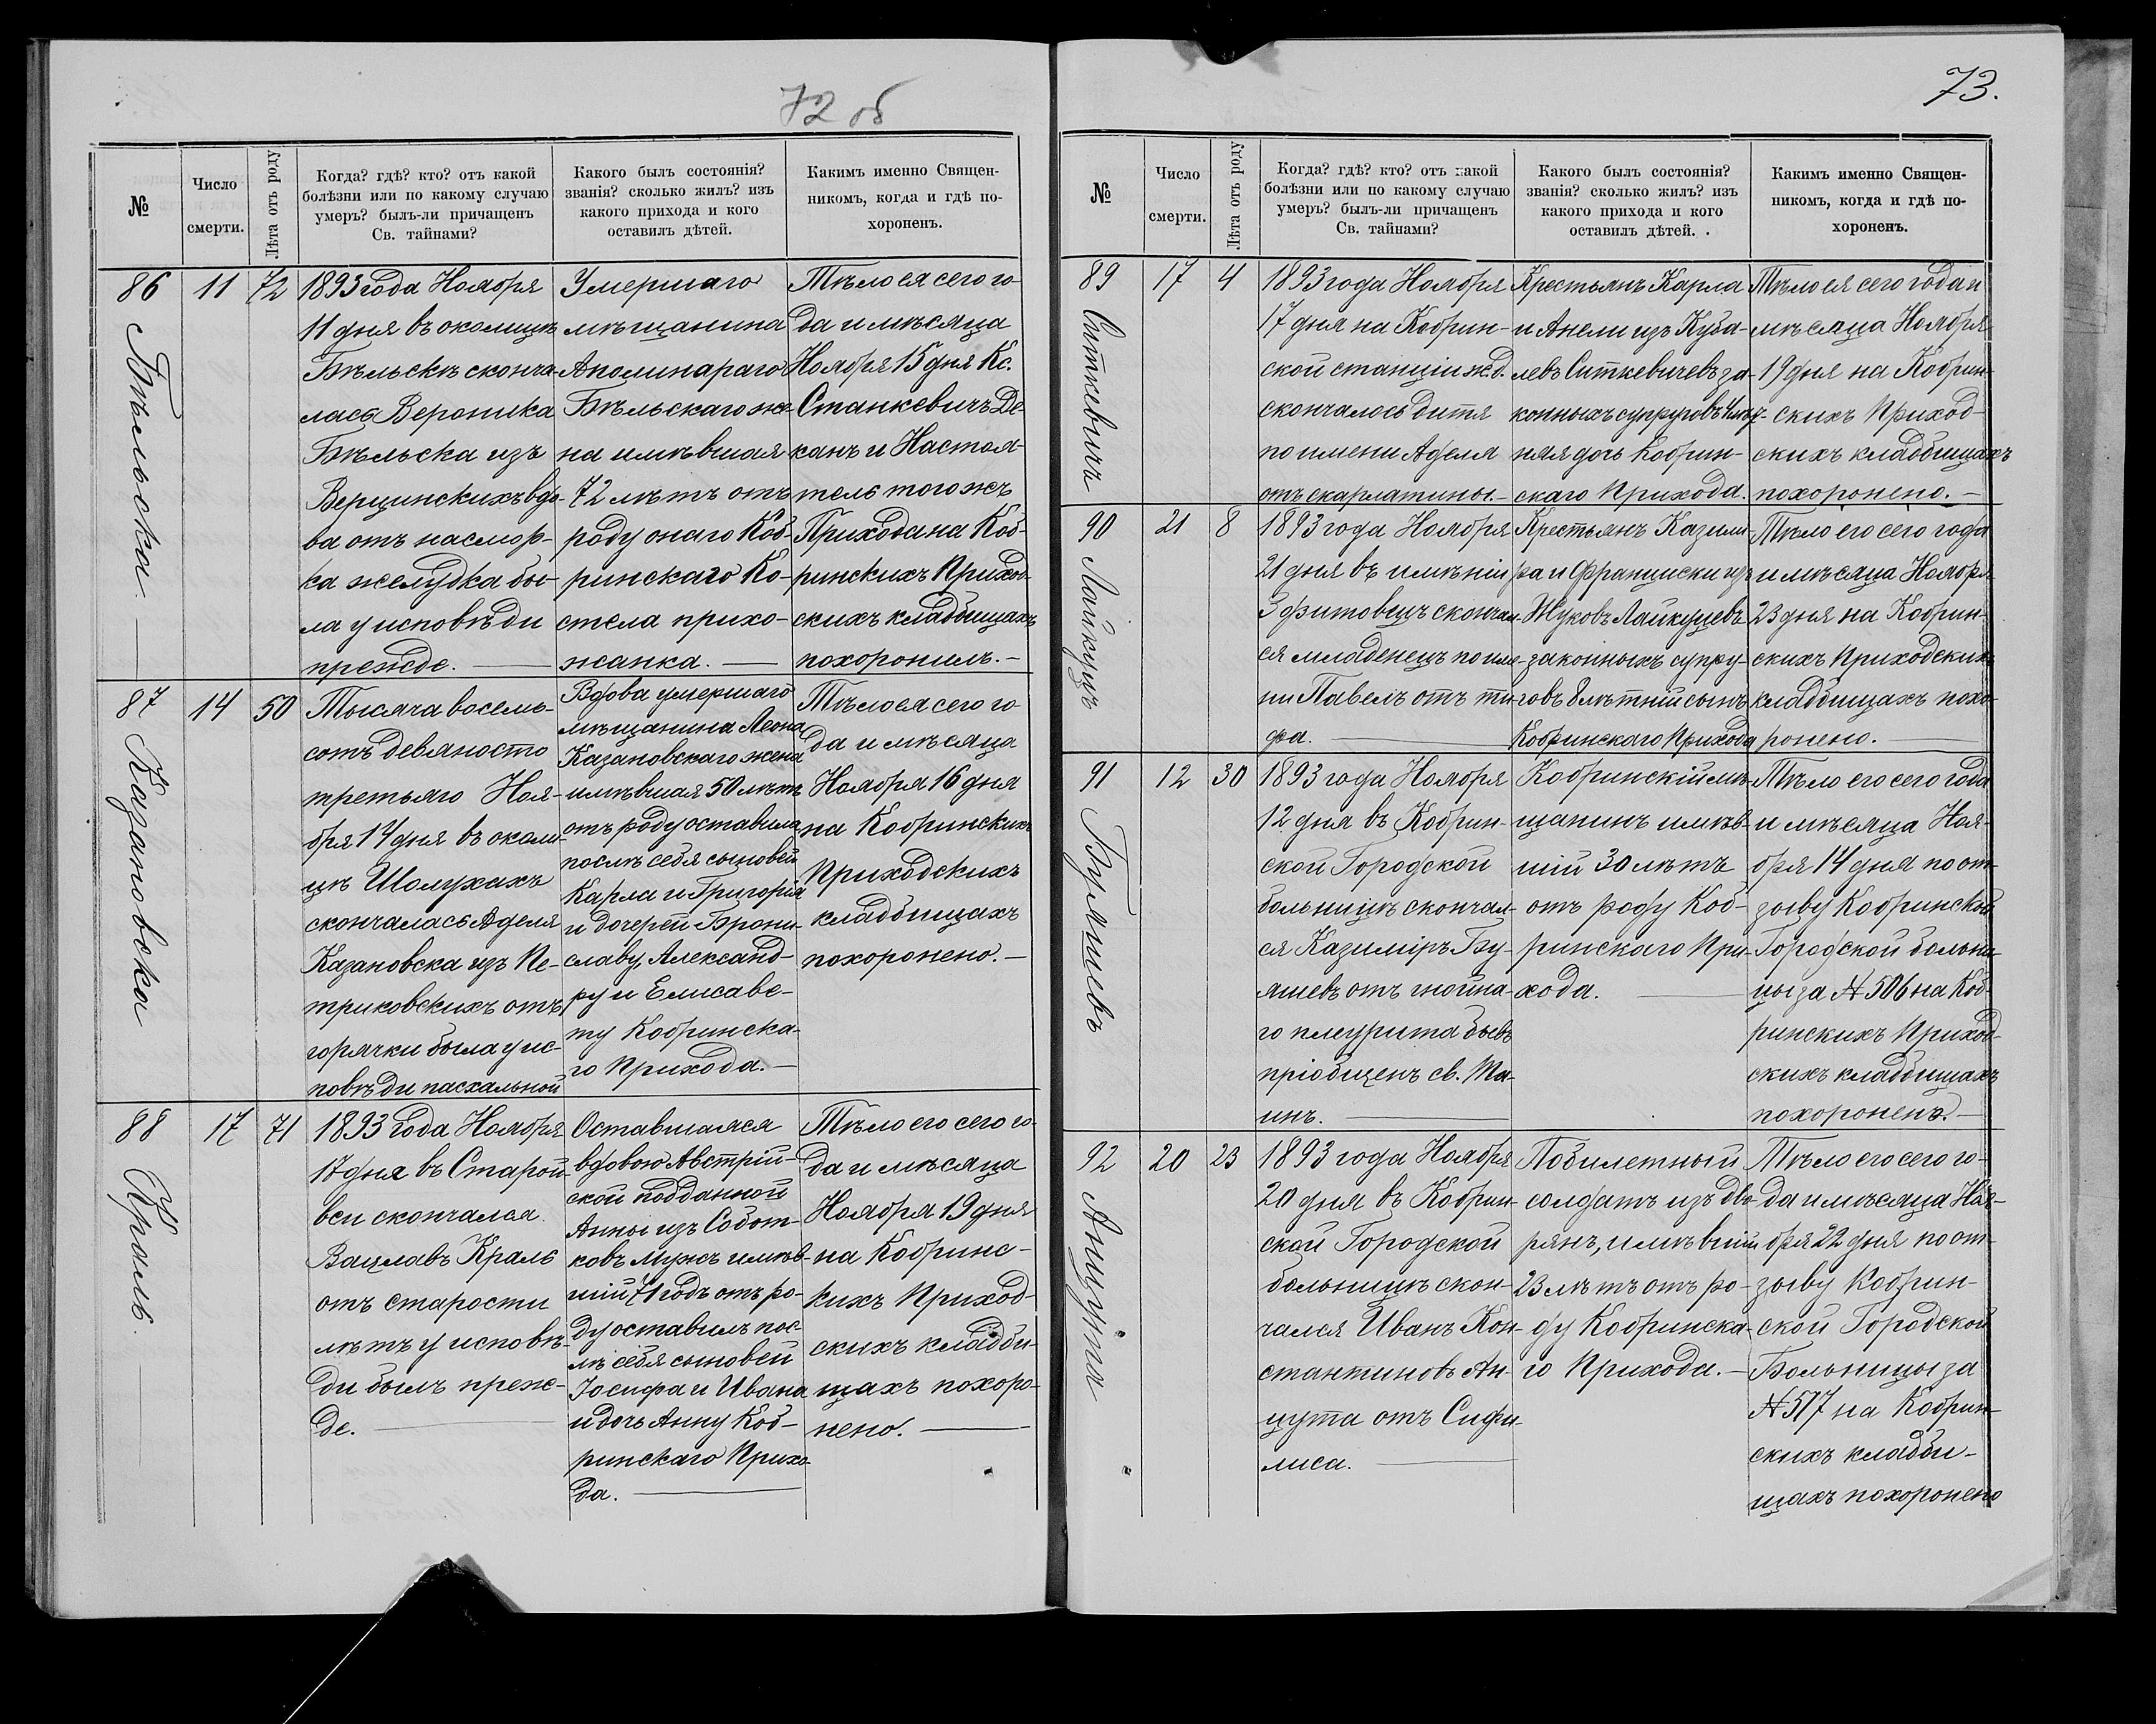 72 об
№
Число
смерти.
Лѣта отъ роду
Когда? гдѣ? кто? отъ какой
болѣзни или по какому случаю
умеръ? былъ-ли причащенъ
Св. тайнами?
Какого былъ состоянія?
званія? сколько жилъ? изъ
какого прихода и кого
оставилъ дѣтей.
Какимъ именно Священ-
никомъ, когда и гдѣ по-
хороненъ.
86
Бѣльска
11
72
1893 года Ноября
11 дня въ околицѣ
Бѣльскѣ сконча-
лась Вероника
Бѣльска изъ
Верцинскихъ вдо-
ва отъ насмор-
ка желудка бы-
ла у исповѣди
прежде.
Умершаго
мѣщанина
Аполинараго
Бѣльскаго же-
на имѣвшая
72 лѣтъ отъ
роду онаго Коб-
ринскаго Ко-
стела прихо-
жанка.
Тѣло ея сего го-
да и мѣсяца
Ноября 15 дня Кс.
Станкевичъ Де-
канъ и Настоя-
тель того жъ
Прихода на Коб-
ринскихъ Приход-
скихъ кладбищахъ
похоронилъ.
87
Казановска
14
50
Тысяча восемь-
сотъ девяносто
третьяго Ноя-
бря 14 дня въ околи-
цѣ Шолухахъ
скончалась Аделя
Казановска изъ Пе-
триковскихъ отъ
горячки была у ис-
повѣди пасхальной
Вдова умершаго
мѣщанина Леона
Казановскаго жена
имѣвшая 50 лѣтъ
отъ роду оставила
послѣ себя сыновей
Карла и Григорія
и дочерей Брони-
славу, Александ-
ру и Елисаве-
ту Кобринска-
го Прихода.
Тѣло ея сего го-
да и мѣсяца
Ноября 16 дня
на Кобринскихъ
Приходскихъ
кладбищахъ
похоронено.
88
Краль
17
71
1893 года Ноября
17 дня въ Старой-
вси скончался
Вацлавъ Краль
отъ старости
лѣтъ у исповѣ-
ди былъ преж-
де.
Оставшаяся
вдовою Австрій-
ской подданной
Анны изъ Собот-
ковъ мужъ имѣв-
шій 71 годъ отъ ро-
ду оставилъ пос-
лѣ себя сыновей
Іосифа и Ивана
и дочь Анну Коб-
ринскаго Прихо-
да.
Тѣло его сего го-
да и мѣсяца
Ноября 19 дня
на Кобринс-
кихъ Приход-
скихъ кладби-
щахъ похоро-
нено.
73.
№
Число
смерти.
Лѣта отъ роду
Когда? гдѣ? кто? отъ какой
болѣзни или по какому случаю
умеръ? былъ-ли причащенъ
Св. тайнами?
Какого былъ состоянія?
званія? сколько жилъ? изъ
какого прихода и кого
оставилъ дѣтей.
Какимъ именно Священ-
никомъ, когда и гдѣ по-
хороненъ.
89
Ситкевичъ
17
4
1893 года Ноября
17 дня на Кобрин-
ской станціи ж.д.
скончалось дитя
по имени Аделя
отъ скарлатины.
Крестьянъ Карла
и Анели изъ Куба-
левъ Ситкевичевъ за-
конныхъ супруговъ
няя дочь Кобрин-
скаго Прихода.
Тѣло ея сего года и
мѣсяца Ноября
19 дня на Кобрин-
скихъ Приход-
скихъ кладбищахъ
похоронено.
90
Лайкуцъ
21
8
1893 года Ноября
21 дня въ имѣніи
Здитовецъ скончал-
ся младенецъ по име-
ни Павелъ отъ ти-
фа.
Крестьянъ Казими-
ра и Франциски изъ
Жуковъ Лайкуцевъ
законныхъ супру-
говъ 8 лѣтній сынъ
Кобринскаго Прихода
Тѣло его сего года
и мѣсяца Ноября
23 дня на Кобрин-
скихъ Приходскихъ
кладбищахъ похо-
ронено.
91
Бумшевъ
12
30
1893 года Ноября
12 дня въ Кобрин-
ской Городской
больницѣ скончал-
ся Казиміръ Бу-
мшевъ отъ гнойна-
го плеурита бывъ
пріобщенъ св. Та-
инъ.
Кобринскій мѣ-
щанинъ имѣв-
шій 30 лѣтъ
отъ роду Коб-
ринскаго При-
хода.
Тѣло его сего года
и мѣсяца Ноя-
бря 14 дня по от-
зыву Кобринской
Городской больни-
цы за № 506 на Коб-
ринскихъ Приход-
скихъ кладбищахъ
похороненъ.
92
Анцута
20
23
1893 года Ноября
20 дня въ Кобрин-
ской Городской
больницѣ скон-
чался Иванъ Кон-
стантиновъ Ан-
цута отъ Сифи-
лиса.
Побилетный
солдатъ изъ дво-
рянъ, имѣвшій
23 лѣтъ отъ ро-
ду Кобринска-
го Прихода.
Тѣло его сего го-
да и мѣсяца Ноя-
бря 22 дня по от-
зыву Кобрин-
ской Городской
Больницы за
№ 517 на Кобрин-
скихъ кладби-
щахъ похоронено